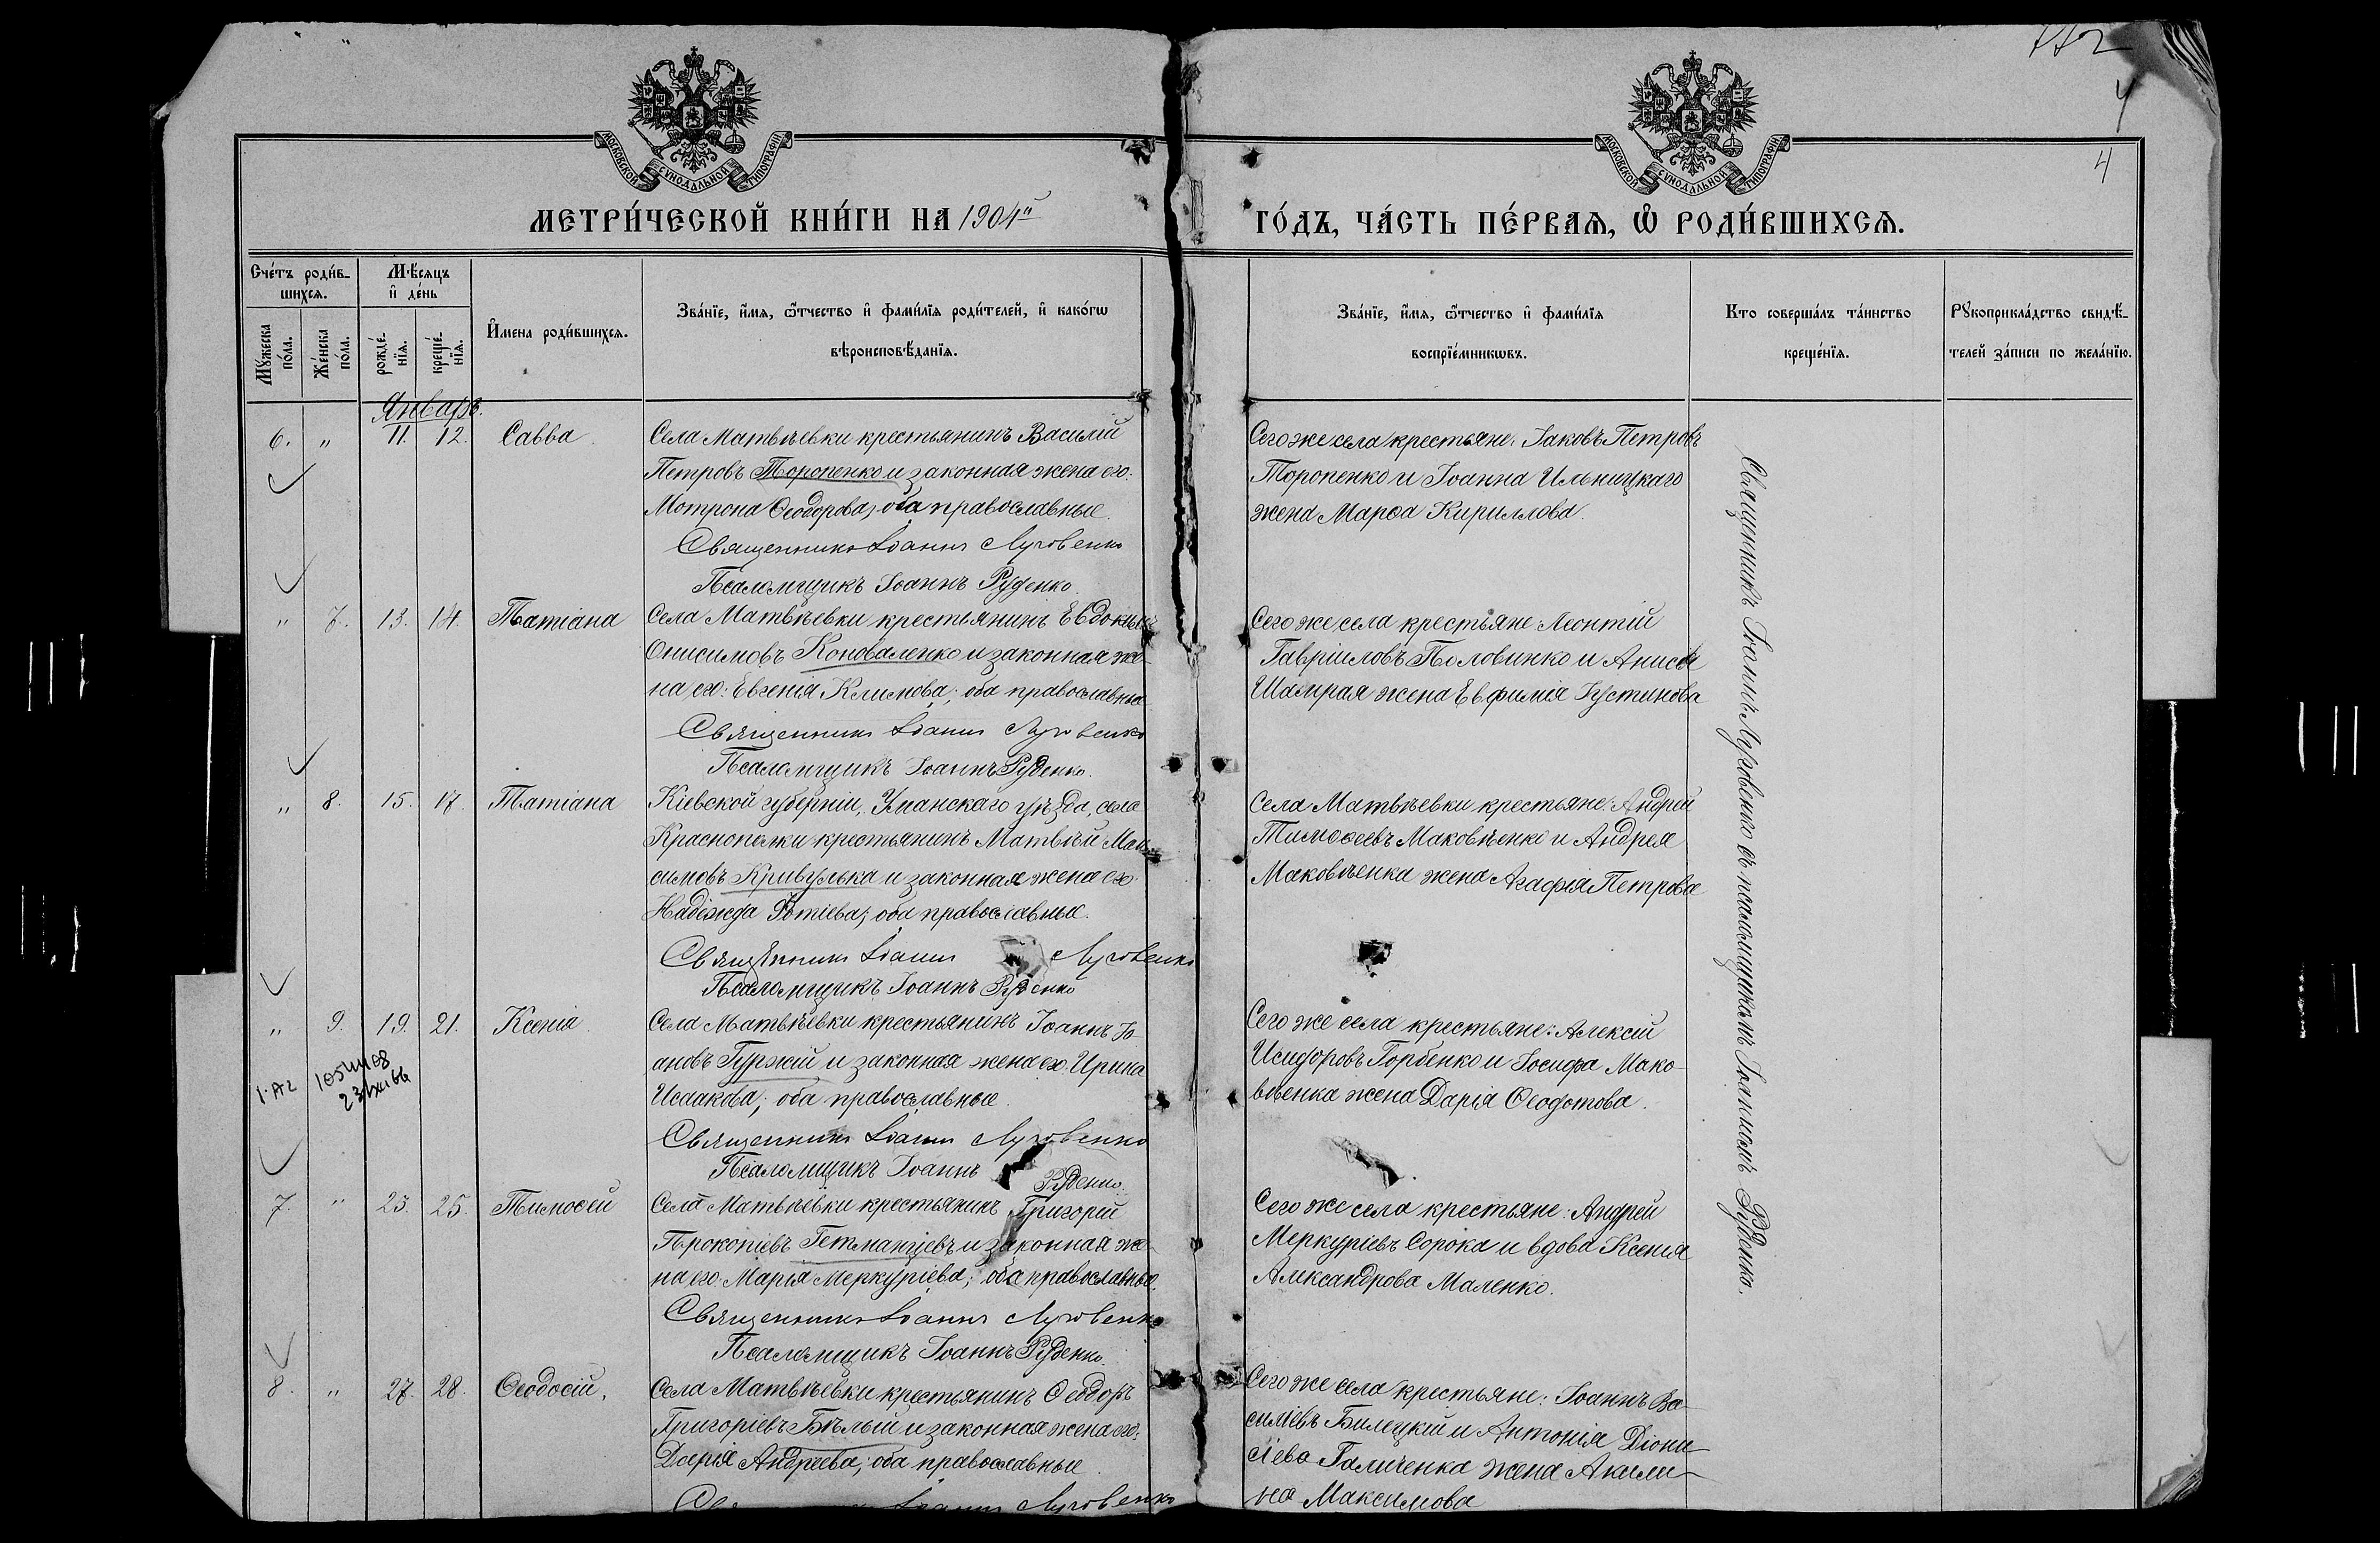 442
4
4
МОСКОВСКОЙ СѴНОДАЛЬНОЙ ТИПОГРАФІИ
МОСКОВСКОЙ СѴНОДАЛЬНОЙ ТИПОГРАФІИ
МЕТРИ́ЧЕСКОЙ КНИ́ГИ НА 1904й ГО́ДЪ, ЧА́СТЬ ПЕ́РВАЯ, Ѽ РОДИ́ВШИХСѦ.
Счетъ роди́в-
шихсѧ.
Мꙋжеска по́ла.
Же́нска по́ла.
Мѣ́сѧцъ
и҆ де́нь
рожде́-
нїѧ.
креще́-
нїѧ.
И҆мена роди́вшихсѧ.
Зва́нїе, и҆́мѧ, ѻ҆́тчество и҆ фами́лїѧ роди́телей, и҆ како́гѡ
вѣроисповѣ́данїѧ.
Зва́нїе, и҆́мѧ, ѻ҆́тчество и҆ фами́лїѧ
воспрїе́мникѡвъ.
Кто соверша́лъ та́инство
креще́нїѧ.
Рꙋкоприкла́дство свидѣ́-
телей за́писи по жела́нїю.
Январь.
6. " 11. 12. Савва
Села Матвѣевки крестьянинъ Василій
Петровъ Торопенко и законная жена его:
Мотрона Ѳеодорова, оба православные.
Священникъ Іоаннъ Луговенко
Псаломщикъ Іоаннъ Руденко.
Сего же села крестьяне: Іаковъ Петровъ
Торопенко и Іоанна Ильницкаго
жена Марѳа Кириллова.
" 7. 13. 14. Татіана
Села Матвѣевки крестьянинъ Евдокимъ
Онисимовъ Коноваленко и законная же-
на его: Евгенія Климова; оба православные
Священникъ Іоаннъ Луговенко
Псаломщикъ Іоаннъ Руденко.
Сего же села крестьяне: Леонтій
Гавріиловъ Половинко и Анисія
Шамрая жена Евфимія Іустинова
" 8. 15. 17. Татіана
Кіевской губерніи, Уманскаго уѣзда, села
Краснополки крестьянинъ Матвѣй Мак-
симовъ Кривулька и законная жена его:
Надежда Фотіева; оба православные.
Священникъ Іоаннъ Луговенко
Псаломщикъ Іоаннъ Руденко
Села Матвѣевки крестьяне: Андрей
Тимоѳеевъ Маковѣенко и Андрея
Маковѣенка жена Агафія Петрова
" 9. 19. 21. Ксенія
Села Матвѣевки крестьянинъ Іоаннъ Іо-
анновъ Гуржій и законная жена его: Ирина
Исаакова; оба православные.
Священникъ Іоаннъ Луговенко
Псаломщикъ Іоаннъ Руденко.
Сего же села крестьяне: Алексій
Исидоровъ Горбенко и Іосифа Мако-
вѣенка жена Дарія Ѳеодотова.
7. " 23. 25. Тимоѳей
Села Матвѣевки крестьянинъ Григорій
Прокопіевъ Гетманцевъ и законная же-
на его: Марія Меркуріева; оба православные.
Священникъ Іоаннъ Луговенко
Псаломщикъ Іоаннъ Руденко.
Сего же села крестьяне: Андрей
Меркуріевъ Сорока и вдова Ксенія
Александрова Маленко.
8. " 27. 28. Ѳеодосій.
Села Матвѣевки крестьянинъ Ѳеодоръ
Григоріевъ Бѣлый и законная жена его:
Дарія Андреева; оба православные.
Іоаннъ Луговенко
Сего же села крестьяне: Іоаннъ Ва-
силіевъ Билецкій и Антонія Діони-
сіева Галиченка жена Акили-
на Максимова
Священникъ Іоаннъ Луговенко съ псаломщикомъ Іоанномъ Руденко.